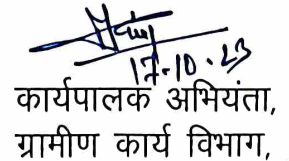 17-10-23
कार्यपालक अभियंता,
ग्रामीण कार्य विभाग,